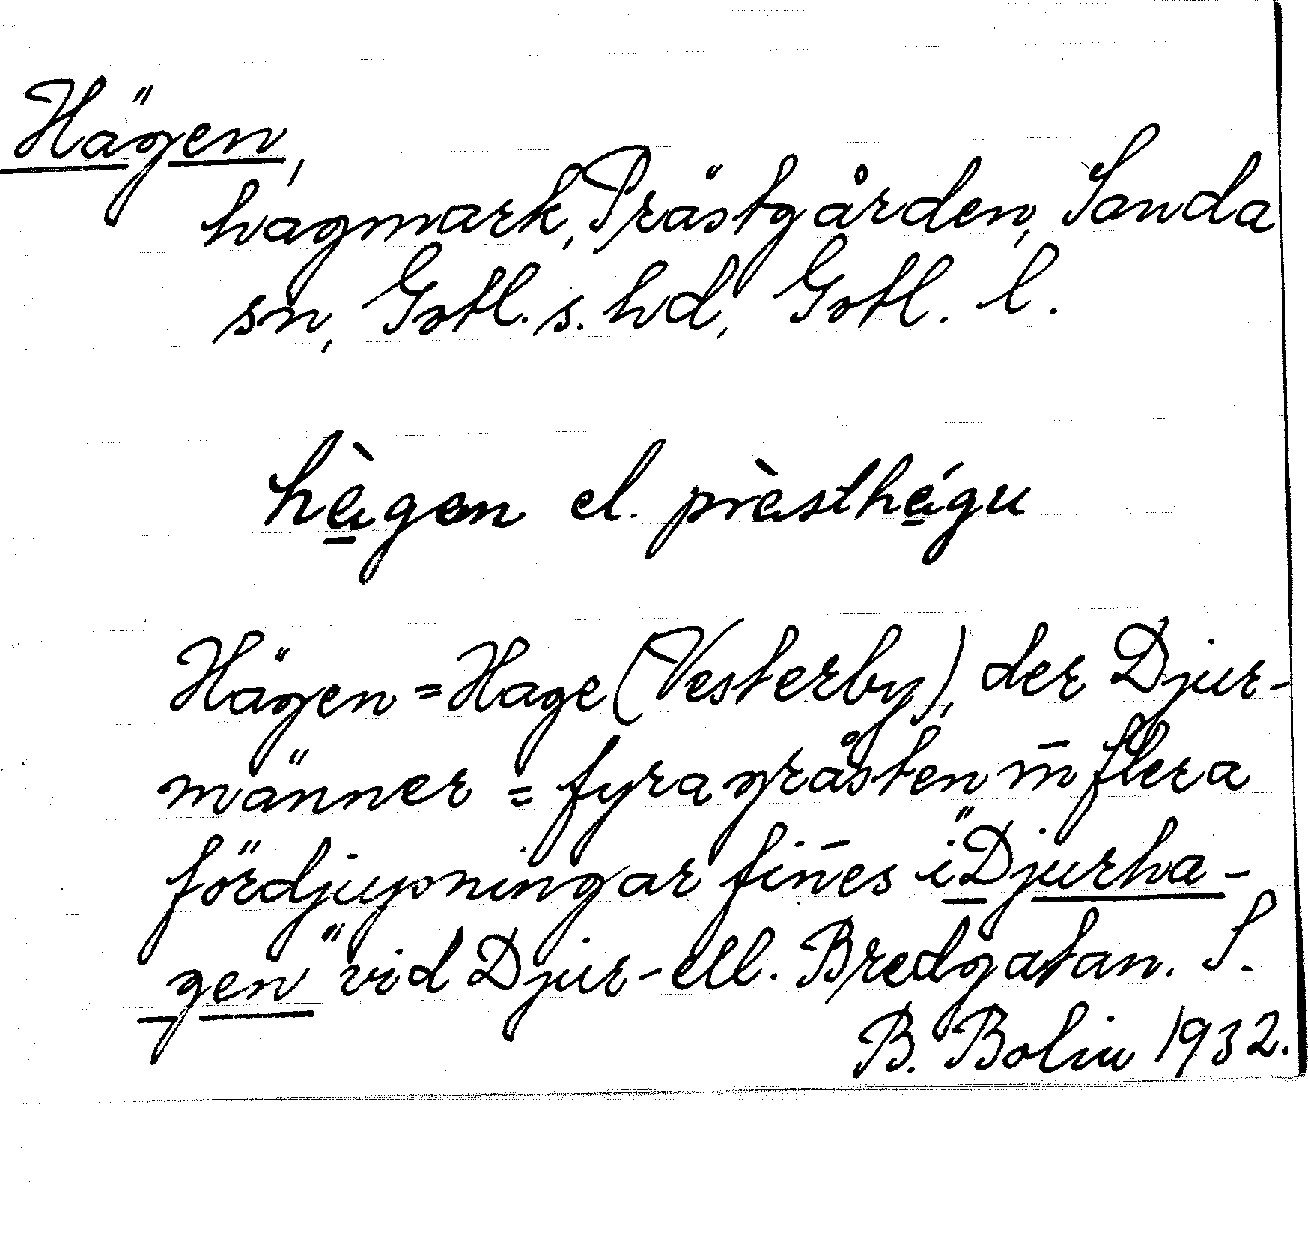 Hägen,
hagmark, Prästgården, Sanda
sn, Gotl. s. hd, Gotl. l.
hàgen el. pràsthágu
Hägen = Hage (Vesterby), der Djur-
männer = fyra gråsten m̄ flera
fördjupningar fin̄es i "Djurha-
gen" vid Djur- ell. Bredgatan. S.
B. Bolin 1932.